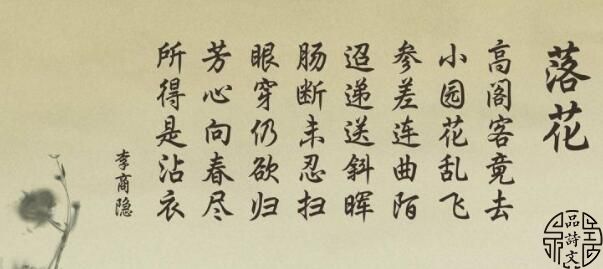 落花
高阁客竟去
小园花乱飞
参差连曲陌
迢递送斜晖
肠断未忍扫
眼穿仍欲归
芳心向春尽
所得是沾衣
李商隐
品詩文